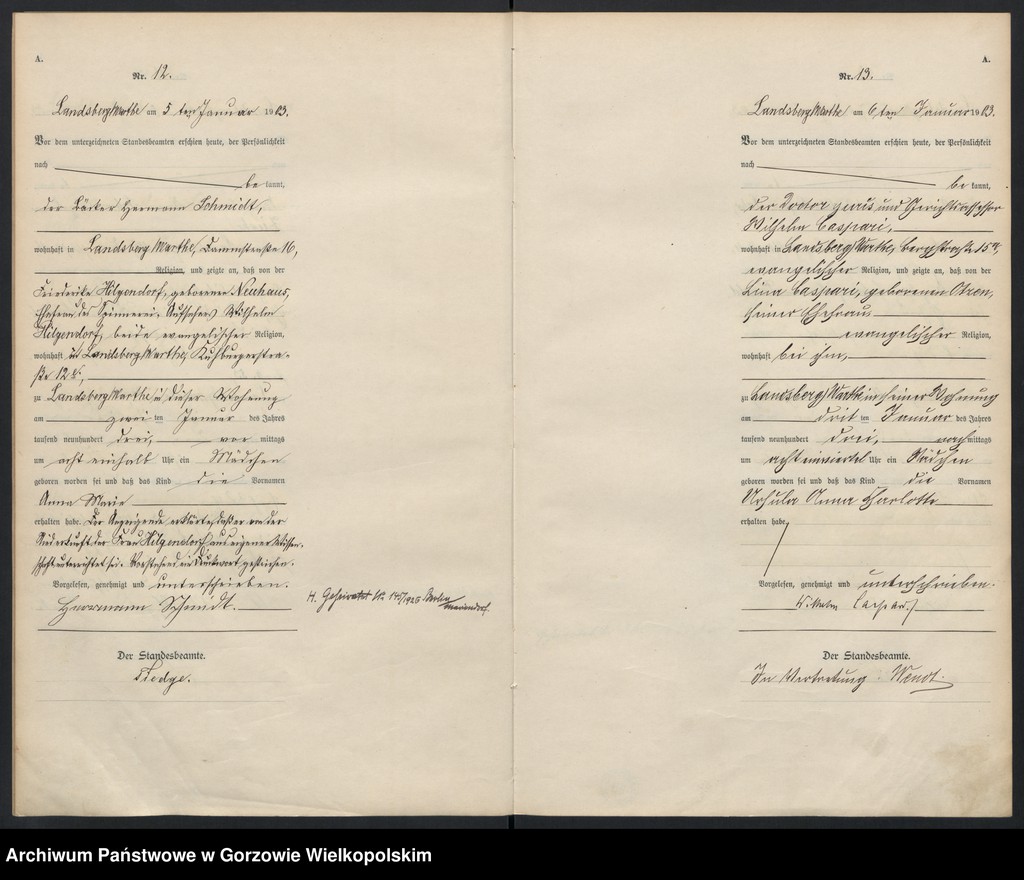 A.
Nr. 12.
Landsberg Warthe am 5 ten Januar 1903.
Vor dem unterzeichneten Standesbeamten erschien heute, der Persönlichkeit
nach
be kannt,
der Bäcker Hermann Schmidt,
wohnhaft in Landsberg Warthe, Dammstraße 16,
Religion, und zeigte an, daß von der
Friederike Hilgendorf, geborenen Neuhaus,
Ehefrau des Spinnerei-Aufsehers Wilhelm
Hilgendorf, beide evangelischer Religion,
wohnhaft in Landsberg Warthe, Kuhburgerstra-
ße 12
zu Landsberg Warthe in dieser Wohnung
am zwei ten Januar des Jahres
tausend neunhundert drei, vor mittags
um acht einhalb Uhr ein Mädchen
geboren worden sei und daß das Kind die Vornamen
Anna Marie
erhalten habe. Der Anzeigende erklärte, daß er von der
Niederkunft der Frau Hilgendorf aus eigener Wissen-
schaft unterrichtet sei. Vorstehend ein Druckwort gestrichen.
Vorgelesen, genehmigt und unterschrieben.
Herrmann Schmidt.
Der Standesbeamte.
H. Geheiratet Nr. 147/1926 Berlin
Mariendorf
A.
Nr. 13.
Landsberg Warthe am 6 ten Januar 1903.
Vor dem unterzeichneten Standesbeamten erschien heute, der Persönlichkeit
nach
be kannt,
der Doctor juris und Gerichtsassessor
Wilhelm Caspari,
wohnhaft in Landsberg Warthe, Bergstraße 15
evangelischer Religion, und zeigte an, daß von der
Lina Caspari, geborenen
seiner Ehefrau
evangelischer Religion,
wohnhaft bei ihm,
zu Landsberg Warthe in seiner Wohnung
am drit ten Januar des Jahres
tausend neunhundert drei, nach mittags
um acht einviertel Uhr ein Mädchen
geboren worden sei und daß das Kind die Vornamen
Ursula Anna Charlotte
erhalten habe
Vorgelesen, genehmigt und unterschrieben.
Wilhelm Caspari
Der Standesbeamte.
In Vertretung: Wendt.
Archiwum Państwowe w Gorzowie Wielkopolskim